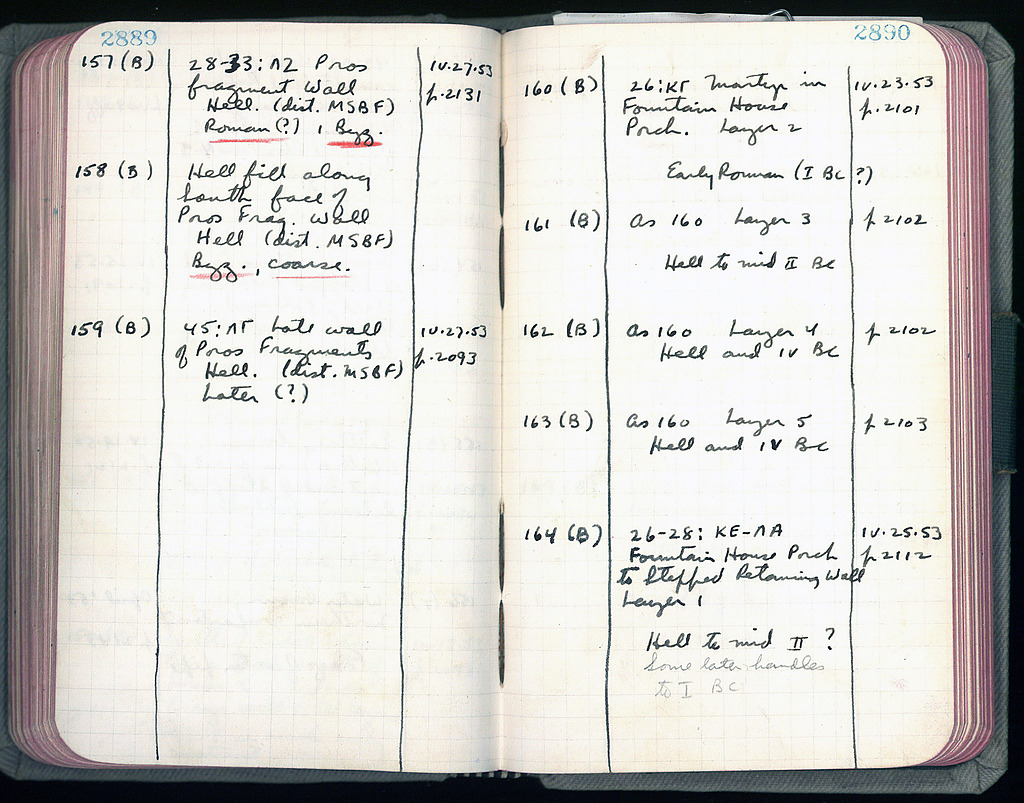 2889
157 (B) 28-33: ΛΖ Pros IV.27.53
fragment Wall p.2131
Hell. (dist. MSBF)
Roman (?) 1 Byz.
158 (B) Hell fill along
South face of
Pros Frag. Wall
Hell (dist. MSBF)
Byz., coarse.
159 (B) 45: ΛΓ Late wall IV.27.53
of Poros Fragments p.2093
Hell. (dist. MSBF)
Later (?)
2890
160 (B) 26: ΚΓ in IV.23.53
Fountain House p.2101
Porch. Layer 2
Early Roman (I BC ?)
161 (B) As 160 Layer 3 p 2102
Hell to mid II BC
162 (B) As 160 Layer 4 p 2102
Hell and IV BC
163 (B) As 160 Layer 5 p 2103
Hell and IV BC
164 (B) 26-28: ΚΕ-ΛΑ IV.25.53
Fountain House Porch p.2112
to Stepped Retaining Wall
Layer 1
Hell to mid II ?
Some later handles
to I BC